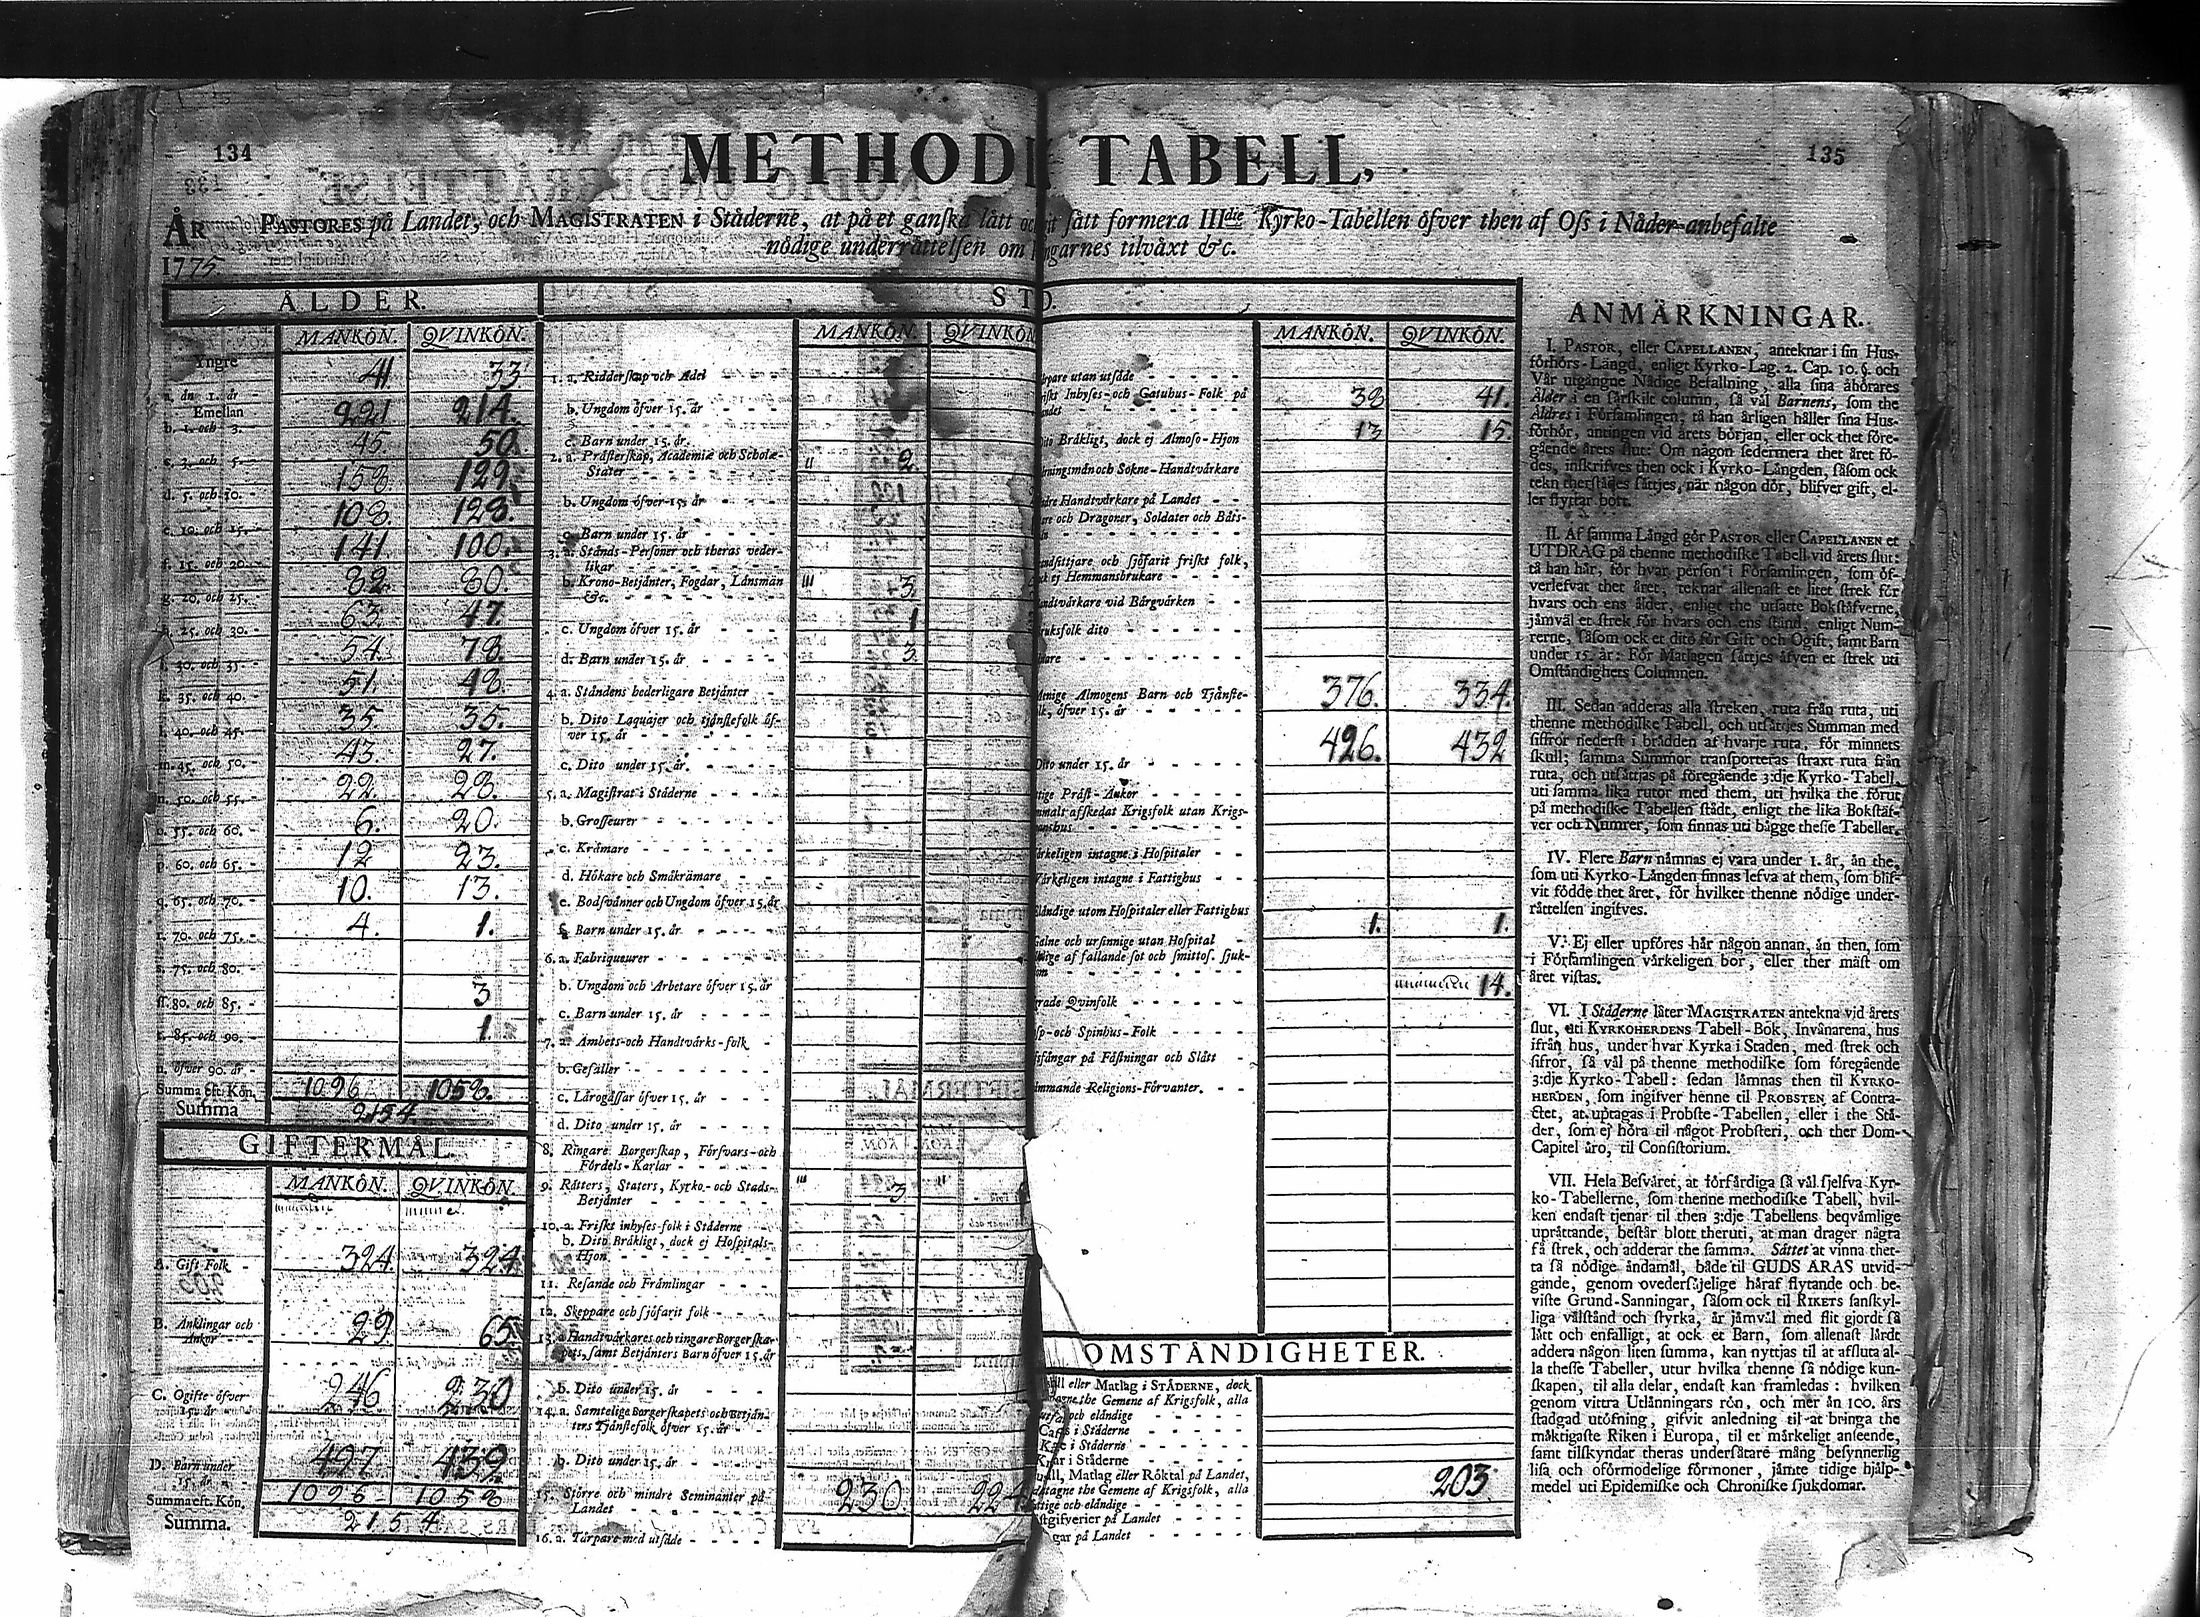 134
135
METHODI TABELL,
ÅR PASTORES på Landet, och MAGISTRATEN i Städerne, at på et ganska lätt och sätt formera IIIdie Kyrko-Tabellen öfver then af Oss i Nåder anbefalte
1775 nödige underrättelsen om garnes tilväxt &c.
ÅLDER.
MANKÖN. QVINKÖN.
Yngre än 1. år 41 33
Emellan b. 1. och 3. 221 214.
c. 3. och 5. 45. 50.
d. 5. och 10. 158 129.
e. 10. och 15. 108. 128.
f. 15. och 20. 141. 100.
g. 20. och 25. 82. 80.
h. 25. och 30. 63. 47.
i. 30. och 35. 54. 78.
k. 35. och 40. 51. 48.
l. 40. och 45. 35. 35.
m. 45. och 50. 43. 27.
n. 50. och 55. 22. 28.
o. 55. och 60. 6. 20.
p. 60. och 65. 12 23.
q. 65. och 70. 10. 13.
r. 70. och 75. 4. 1.
s. 75. och 80.
ſſ. 80. och 85. 3
t. 85. och 90. 1.
u. öfver 90. år
Summa eft. Kön. 1096 1058.
Summa 2154.
GIFTERMÅL.
MANKÖN. QVINKÖN.
A. Gift Folk 324. 324.
B. Änklingar och Änkor 29. 65.
C. Ogifte öfver 15. år 246. 230
D. Barn under 15. år 497. 439.
Summa eft. Kön. 1096 1058
Summa. 2154
STD.
MANKÖN. QVINKÖN.
1. a. Ridderskap och Adel
b. Ungdom öfver 15. år
c. Barn under 15. år.
2. a. Prästerskap, Academiæ och Scholæ-Stater 2.
b. Ungdom öfver 15. år
c. Barn under 15. år
3. a. Stånds-Personer och theras vederlikar
b. Krono-Betjänter, Fogdar, Länsmän &c. 3.
c. Ungdom öfver 15. år 1
d. Barn under 15. år 3.
4. a. Ståndens hederligare Betjänter
b. Dito Laquajer och tjänstefolk öfver 15. år
c. Dito under 15. år.
5. a. Magistrat i Städerne
b. Grosseurer
c. Krämare
d. Hökare och Småkrämare
e. Bodsvänner och Ungdom öfver 15. år
f. Barn under 15. år
6. a. Fabriqueurer
b. Ungdom och Arbetare öfver 15. år
c. Barn under 15. år
7. a. Ämbets- och Handtvärks-folk
b. Gesäller
c. Lärogåssar öfver 15. år
d. Dito under 15. år
8. Ringare Borgerskap, Försvars- och Fördels-Karlar
9. Rätters, Staters, Kyrko- och Stads-Betjänter 3
10. a. Friskt inhyses-folk i Städerne
b. Dito Bräkligt, dock ej Hospitals-Hjon
11. Resande och Främlingar
12. Skeppare och sjöfarit folk
13. a. Handtvärkares och ringare Borgerskapets, samt Betjänters Barn öfver 15. år
b. Dito under 15. år
14. a. Samtelige Borgerskapets och Betjänters Tjänstefolk öfver 15. år
b. Dito under 15. år
15. Större och mindre Seminanter på Landet 230. 224
16. a. Tårpare med utsäde
MANKÖN. QVINKÖN.
årpare utan utsäde
riskt Inhyses- och Gatuhus-Folk på andet 38 41.
ito Bräkligt, dock ej Almoso-Hjon 13 15.
rningsmän och Sokne-Handtvärkare
dre Handtvärkare på Landet
are och Dragoner, Soldater och Båts-
ndsittjare och sjöfarit friskt folk, ck ej Hemmansbrukare
andtvärkare vid Bärgvärken
ruksfolk dito
lare
Menige Almogens Barn och Tjänste-lk, öfver 15. år 376. 334.
Dito under 15. år 426. 432
tige Präst-Änkor
mmalt afskedat Krigsfolk utan Krigsmanshus
ärkeligen intagne i Hospitaler
Värkeligen intagne i Fattighus
ländige utom Hospitaler eller Fattighus 1. 1.
Galne och ursinnige utan Hospital
ölige af fallande sot och smittos. sjuk-om
rade Qvinfolk 14.
sp- och Spinhus-Folk
sfångar på Fästningar och Slått
ämmande Religions-Förvanter.
OMSTÄNDIGHETER.
ll eller Matlag i STÄDERNE, dock
agne the Gemene af Krigsfolk, alla
och eländige
i Städerne
i Städerne
i Städerne
ll, Matlag eller Röktal på Landet,
tagne the Gemene af Krigsfolk, alla
ttige och eländige 203.
stgifverier på Landet
gar på Landet
ANMÄRKNINGAR.
I. PASTOR, eller CAPELLANEN, anteknar i sin Hus-
förhörs-Längd, enligt Kyrko-Lag. 2. Cap. 10. §. och
Vår utgångne Nådige Befallning, alla sina åhörares
Ålder i en särskilt column, så väl Barnens, som the
Äldres i Församlingen, tå han årligen håller sina Hus-
förhör, antingen vid årets början, eller ock thet före-
gående årets slut: Om någon sedermera thet året fö-
des, inskrifves then ock i Kyrko-Längden, såsom ock
tekn therstädes sättjes, när någon dör, blifver gift, el-
ler flyttar bort.
II. Af samma Längd gör PASTOR eller CAPELLANEN et
UTDRAG på thenne methodiske Tabell vid årets slut:
tå han här, för hvar person i Församlingen, som öf-
verlefvat thet året, teknar allenast et litet strek för
hvars och ens ålder, enligt the utsatte Bokstäfverne,
jämväl et strek för hvars och ens stånd, enligt Num-
rerne, såsom ock et dito för Gift och Ogift, samt Barn
under 15. år: För Matlagen sättjes äfven et strek uti
Omständighets Columnen.
III. Sedan adderas alla streken, ruta från ruta, uti
thenne methodiske Tabell, och utsättjes Summan med
siffror nederst i brädden af hvarje ruta, för minnets
skull; samma Summor transporteras straxt ruta från
ruta, och utsättjas på föregående 3:dje Kyrko-Tabell,
uti samma lika rutor med them, uti hvilka the förut
på methodiske Tabellen stådt, enligt the lika Bokstäf-
ver och Numrer, som finnas uti bägge thesse Tabeller.
IV. Flere Barn nämnas ej vara under 1. år, än the,
som uti Kyrko-Längden finnas lefva af them, som blif-
vit födde thet året, för hvilket thenne nödige under-
rättelsen ingifves.
V. Ej eller upföres här någon annan, än then, som
i Församlingen värkeligen bor, eller ther mäst om
året vistas.
VI. I Städerne låter MAGISTRATEN antekna vid årets
slut, uti KYRKOHERDENS Tabell-Bok, Invånarena, hus
ifrån hus, under hvar Kyrka i Staden, med strek och
sifror, så väl på thenne methodiske som föregående
3:dje Kyrko-Tabell: sedan lämnas then til KYRKO-
HERDEN, som ingifver henne til PROBSTEN af Contra-
ctet, at uptagas i Probste-Tabellen, eller i the Stä-
der, som ej höra til något Probsteri, och ther Dom-
Capitel äro, til Consistorium.
VII. Hela Besväret, at förfärdiga så väl sjelfva Kyr-
ko-Tabellerne, som thenne methodiske Tabell, hvil-
ken endast tjenar til then 3:dje Tabellens beqvämlige
uprättande, består blott theruti, at man drager några
få strek, och adderar the samma. Sättet at vinna thet-
ta så nödige ändamål, både til GUDS ÄRAS utvid-
gande, genom ovedersäjelige häraf flytande och be-
viste Grund-Sanningar, såsom ock til RIKETS sanskyl-
liga välstånd och styrka, är jämväl med flit gjordt så
lätt och enfalligt, at ock et Barn, som allenast lärdt
addera någon liten summa, kan nyttjas til at afsluta al-
la thesse Tabeller, utur hvilka thenne så nödige kun-
skapen, til alla delar, endast kan framledas: hvilken
genom vittra Utlänningars rön, och mer än 100. års
stadgad utöfning, gifvit anledning til at bringa the
mäktigaste Riken i Europa, til et märkeligt anseende,
samt tilskyndat theras undersåtare mång besynnerlig
lisa och oförmodelige förmoner, jämte tidige hjälp-
medel uti Epidemiske och Chroniske sjukdomar.